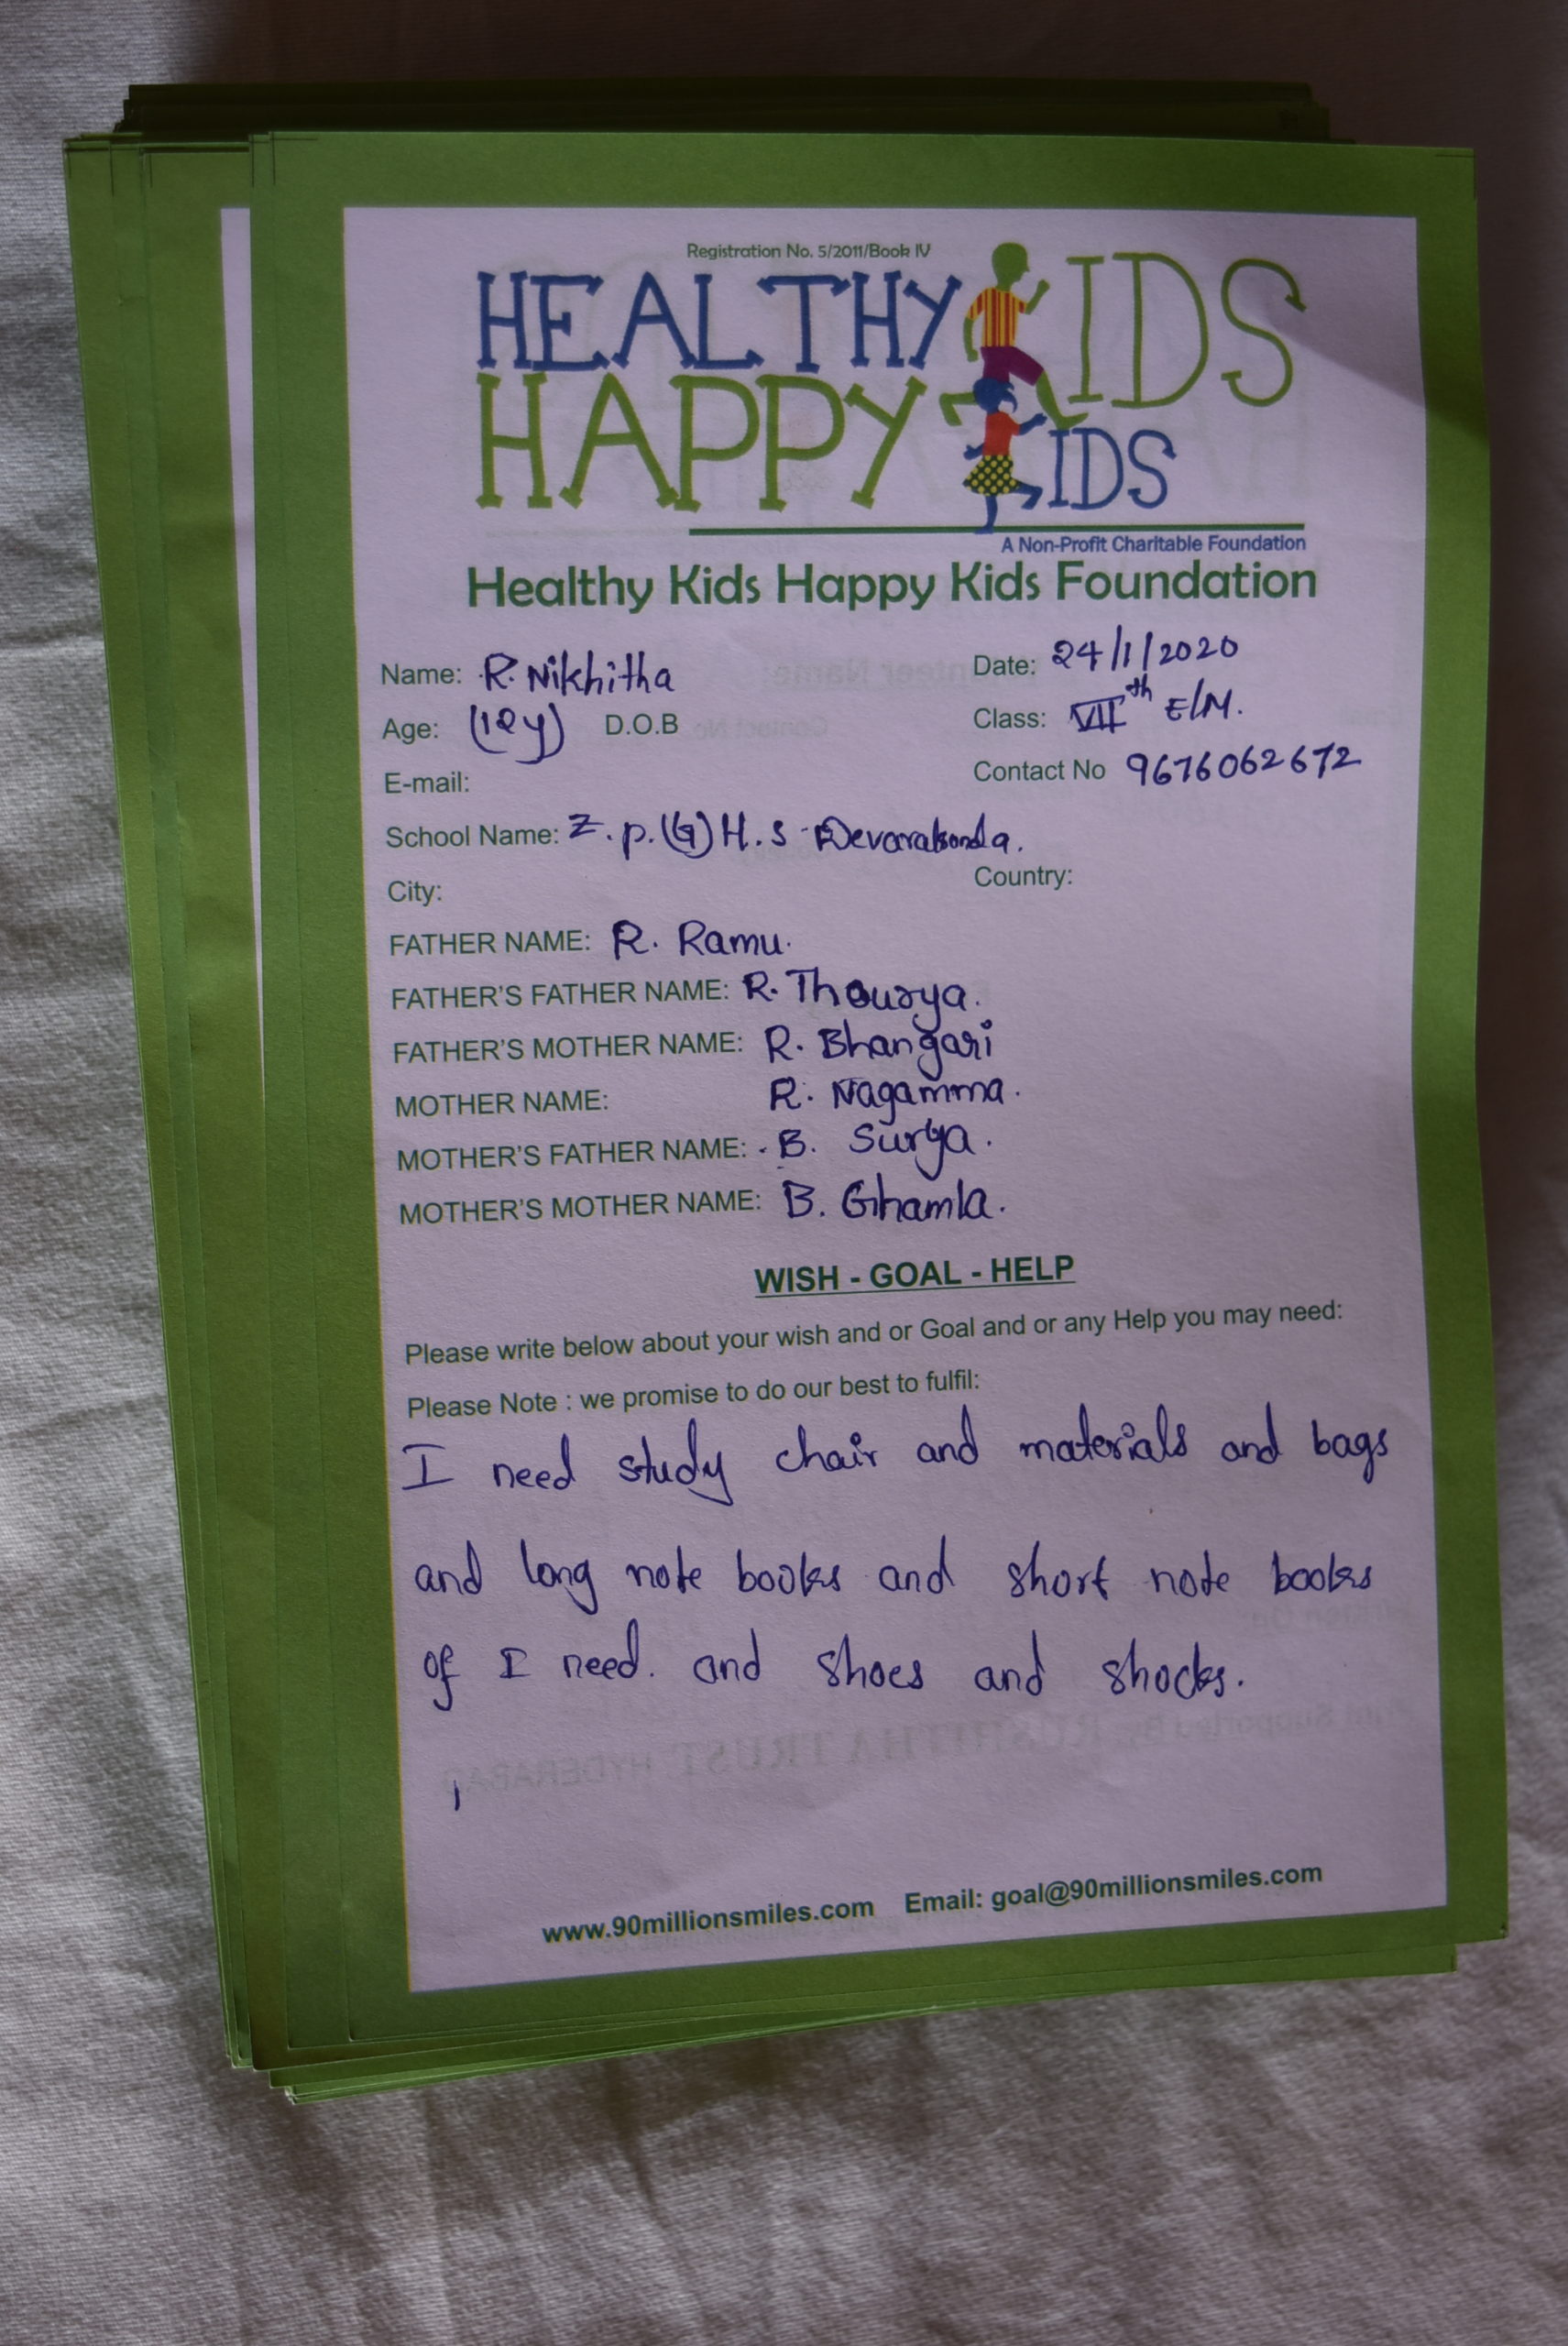 Registration No. 5/2011/Book IV
HEALTHY KIDS
HAPPY KIDS
A Non-Profit Charitable Foundation
Healthy Kids Happy Kids Foundation
Name: R. Nikhitha Date: 24/1/2020
Age: (12y) D.O.B Class: VII th E/M.
E-mail: Contact No 9676062672
School Name: Z.p.(G) H.s Devarakonda.
City: Country:
FATHER NAME: R. Ramu.
FATHER'S FATHER NAME: R. Thourya.
FATHER'S MOTHER NAME: R. Bhangari
MOTHER NAME: R. Nagamma.
MOTHER'S FATHER NAME: B. Surya.
MOTHER'S MOTHER NAME: B. Ghamla.
WISH - GOAL - HELP
Please write below about your wish and or Goal and or any Help you may need:
Please Note : we promise to do our best to fulfil:
I need study chair and materials and bags
and long note books and short note books
of I need. and shoes and shocks.
www.90millionsmiles.com Email: goal@90millionsmiles.com